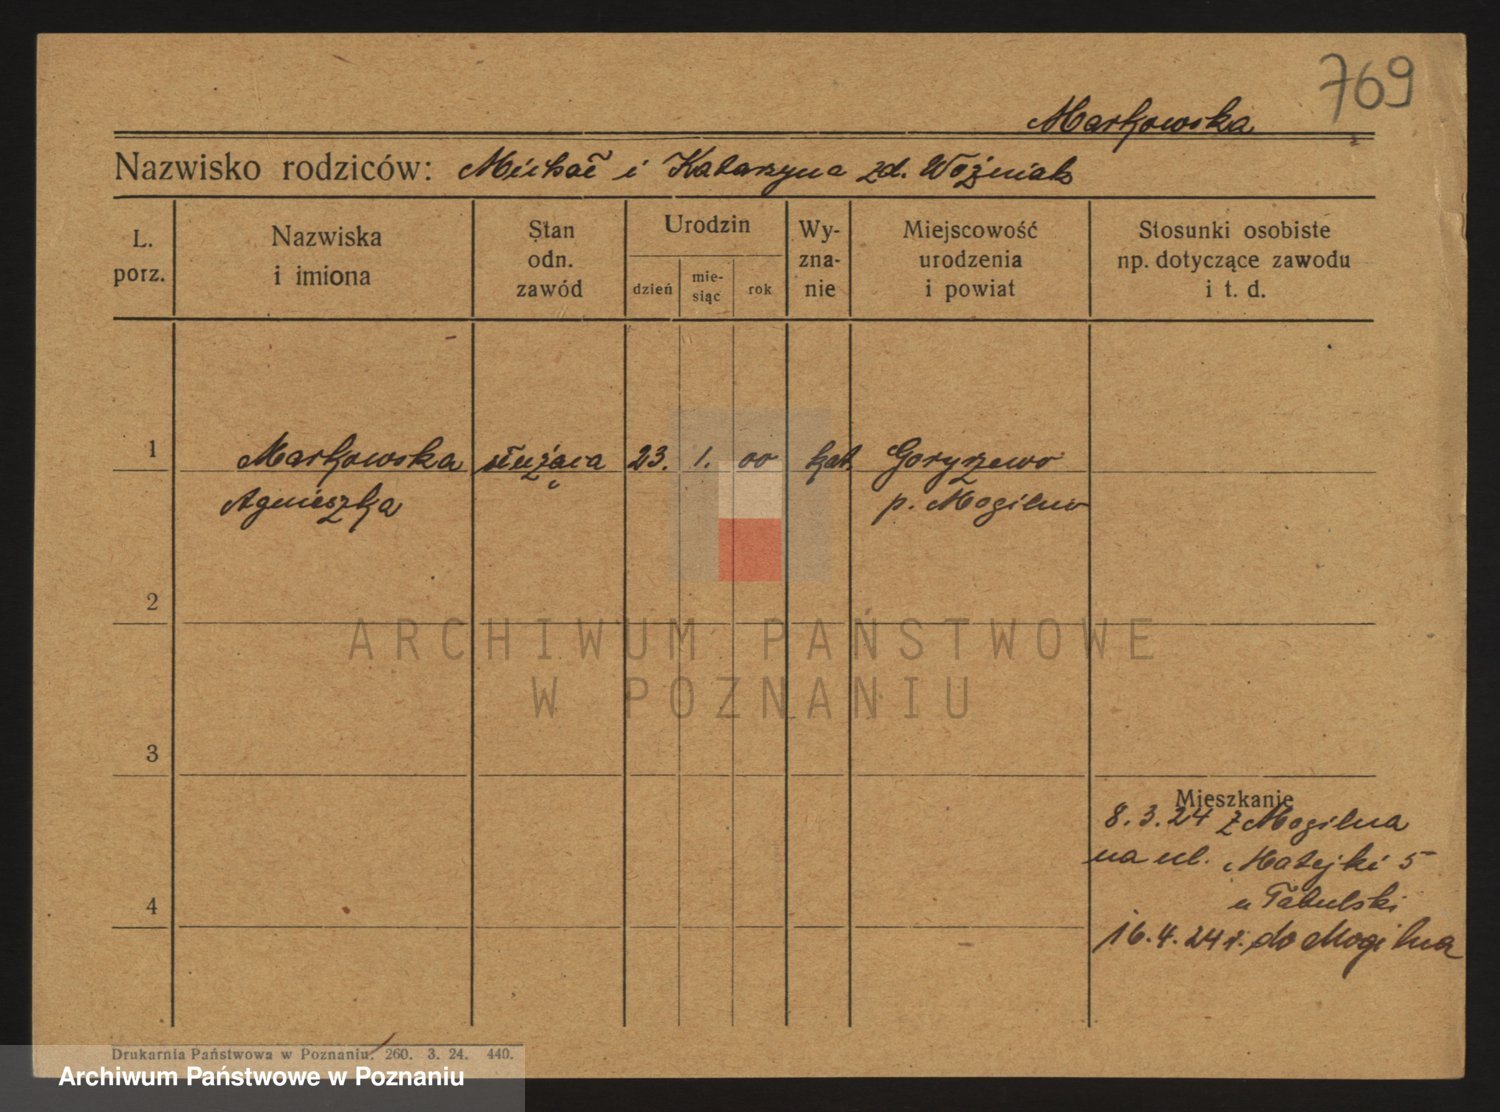 769
Markowska
Nazwisko rodziców: Michał i Katarzyna zd. Woźniak
L. porz.
Nazwiska i imiona
Stan odn. zawód
Urodzin
dzień
mie-
siąc
rok
Wy-
zna-
nie
Miejscowość urodzenia i powiat
Stosunki osobiste
np. dotyczące zawodu
i t. d.
1 Markowska służąca 23. 1. 00 kat. Goryszewo
Agnieszka p. Mogilno
2
ARCHIWUM PAŃSTWOWE
W POZNANIU
3
Mieszkanie
8.3.24 z Mogilna
na ul. Matejki 5
u Tabulski
4
16.4.24 r. do Mogilna
Drukarnia Państwowa w Poznaniu. 260. 3. 24. 440.
Archiwum Państwowe w Poznaniu